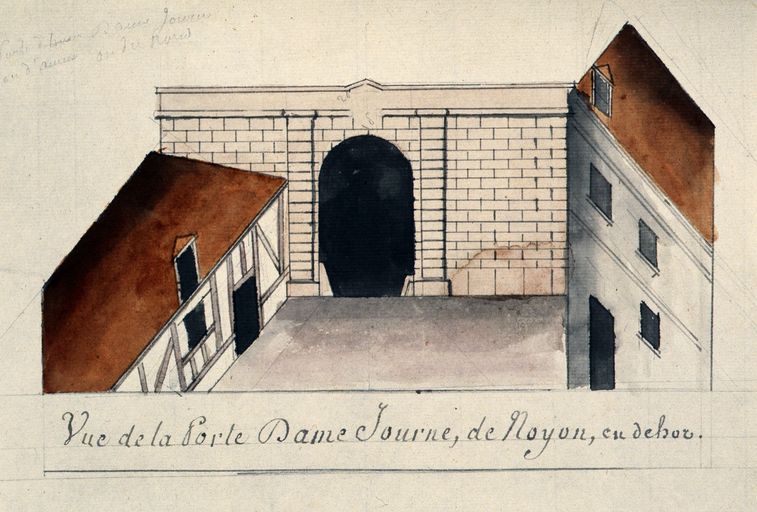 Porte Dame Journe
ou du Nord
Vue de la Porte Dame Journe, de Noyon, en dehor.